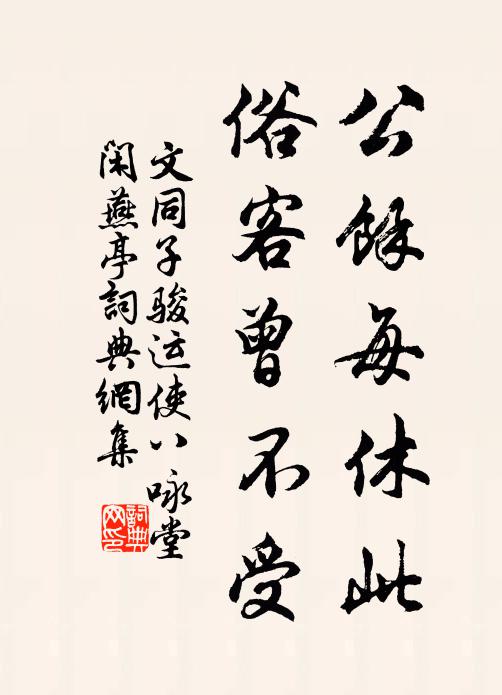 公餘每休此
俗客曾不受
文同子骏运使八咏堂
闲燕亭詞典網集
詞典网印